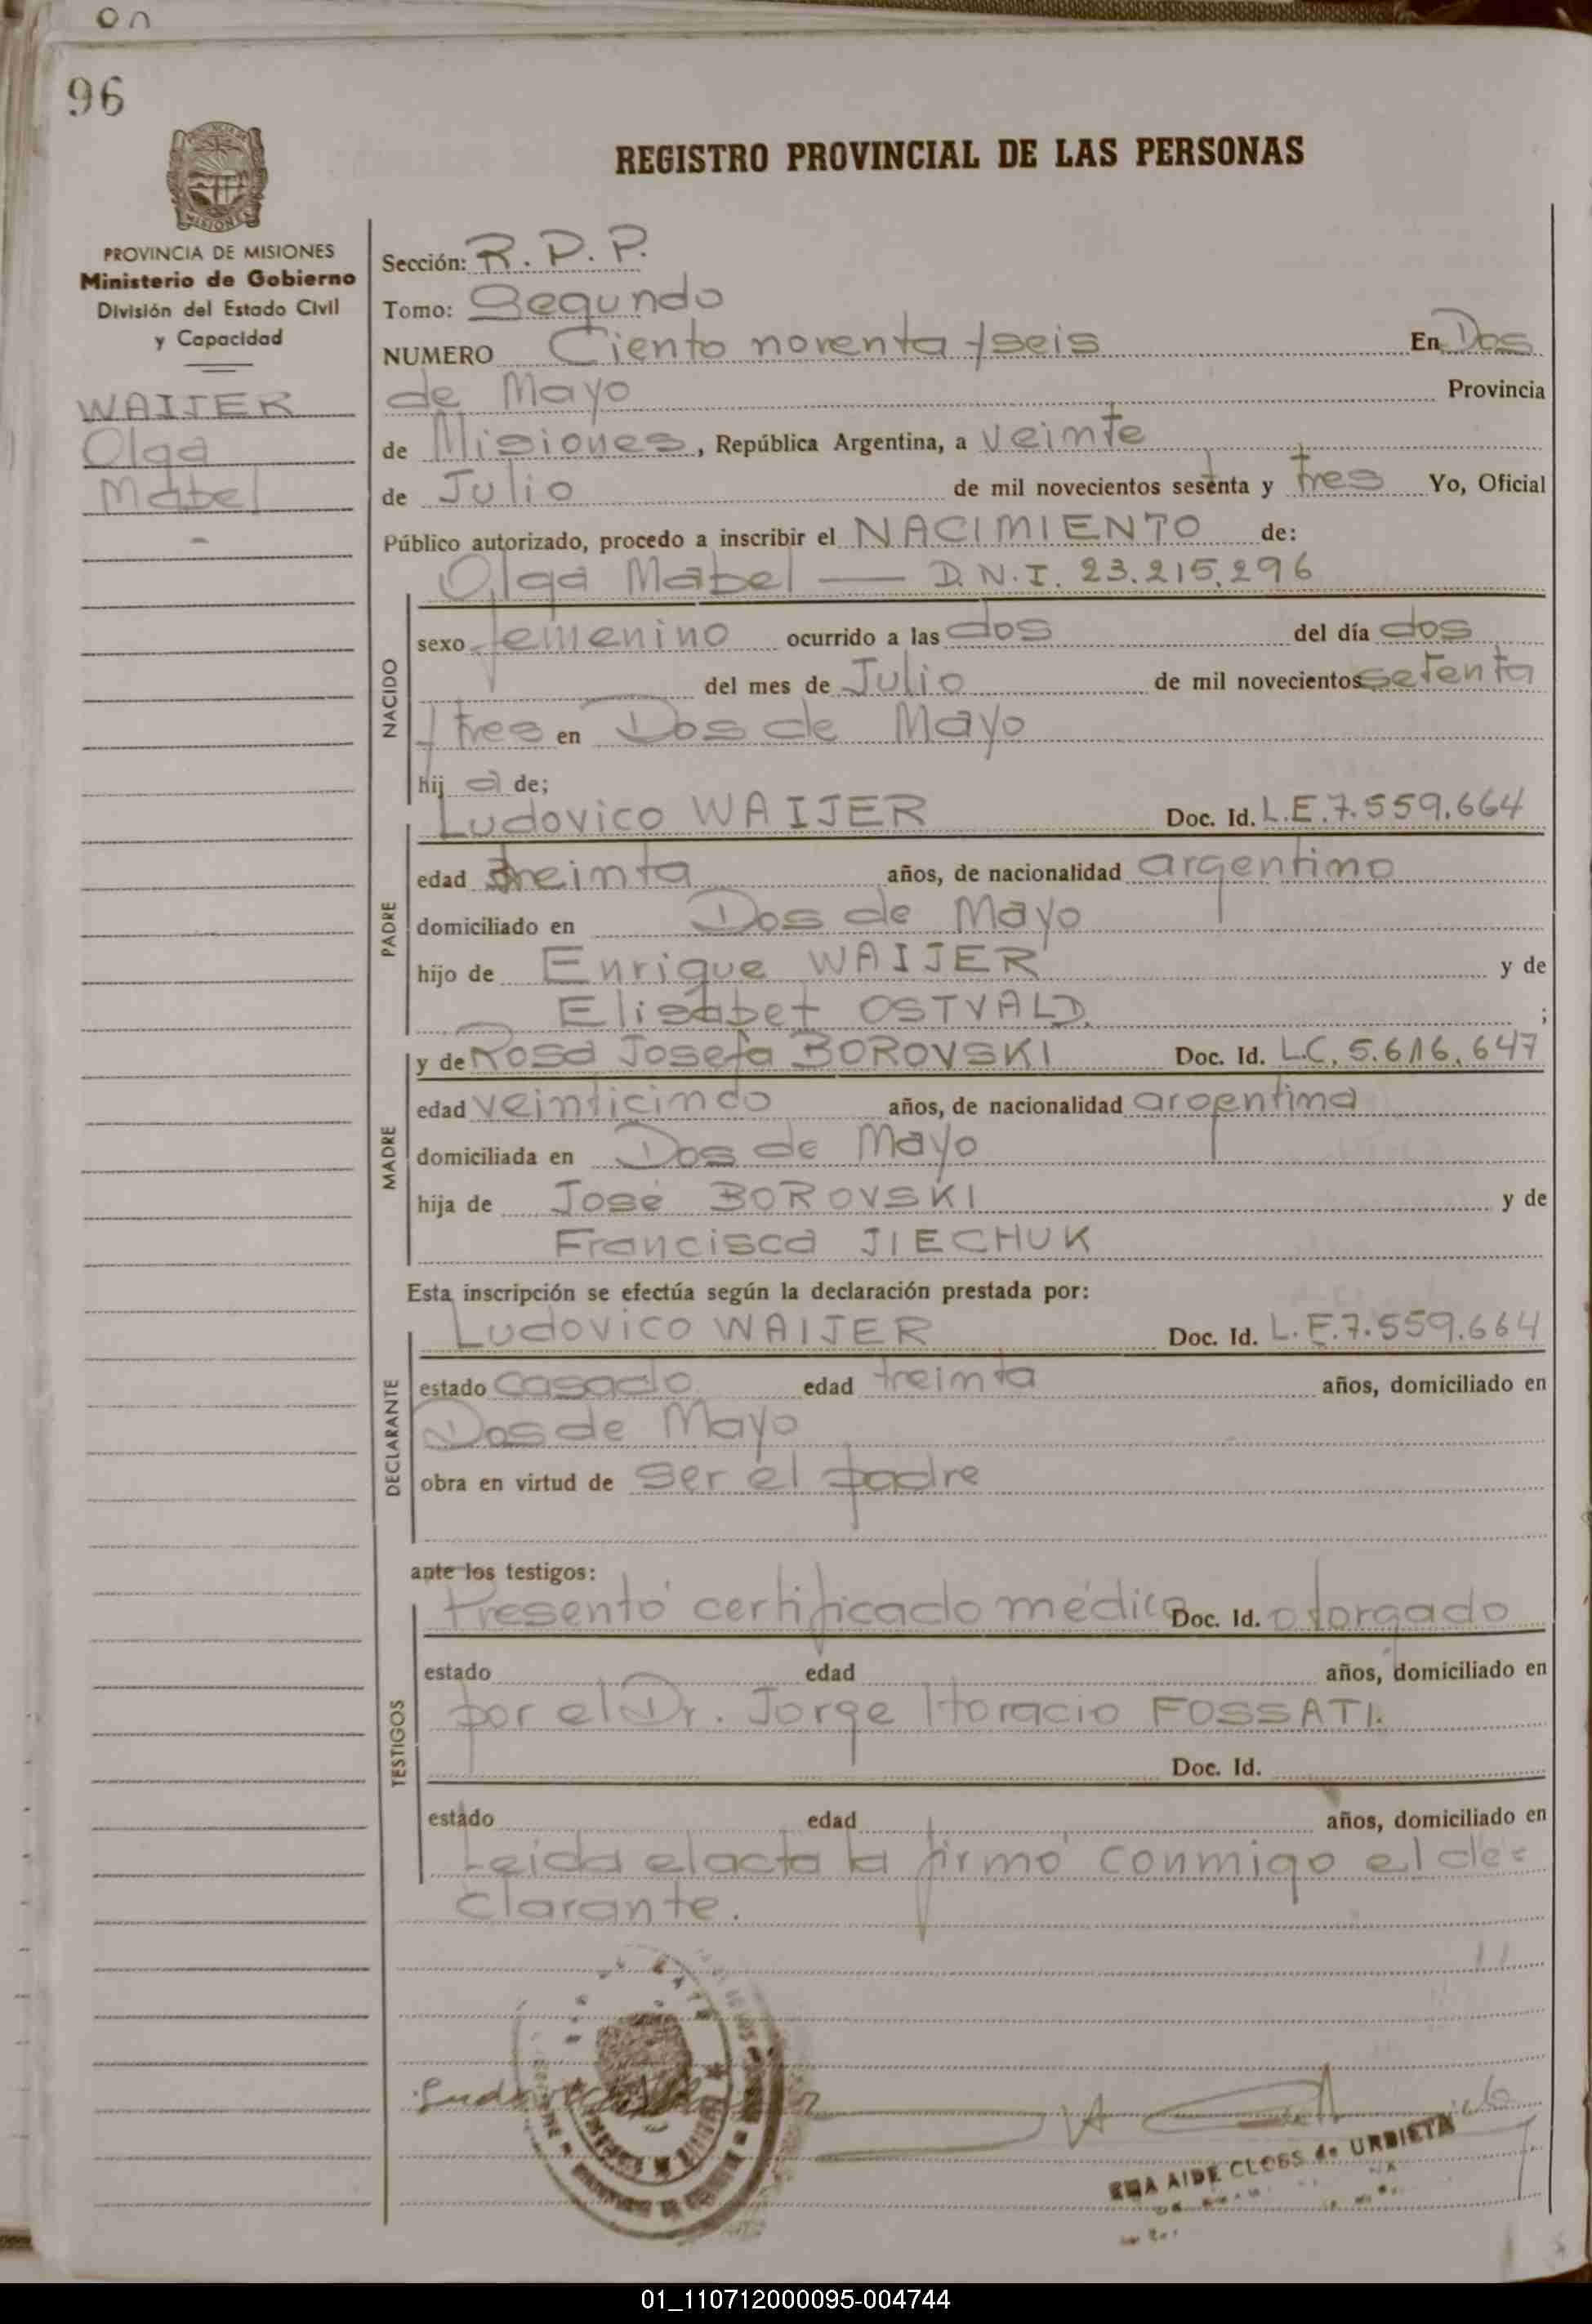 96
REGISTRO PROVINCIAL DE LAS PERSONAS
PROVINCIA DE MISIONES
Ministerio de Gobierno
División del Estado Civil
y Capacidad
WAIJER
Olga
Mabel
Sección: R. P. P.
Tomo: Segundo
NUMERO Ciento noventa y seis En Dos
de Mayo Provincia
de Misiones, República Argentina, a veinte
de Julio de mil novecientos sesenta y tres Yo, Oficial
Público autorizado, procedo a inscribir el NACIMIENTO de:
Olga Mabel — D.N.I. 23.215.296
NACIDO
sexo femenino ocurrido a las dos del día dos
del mes de Julio de mil novecientos setenta
y tres en Dos de Mayo
hij a de;
Ludovico WAIJER Doc. Id. L.E.7.559.664
PADRE
edad treinta años, de nacionalidad argentino
domiciliado en Dos de Mayo
hijo de Enrique WAIJER y de
Elisabet OSTVALD. ;
y de Rosa Josefa BOROVSKI Doc. Id. L.C. 5.616.647
MADRE
edad veinticinco años, de nacionalidad argentina
domiciliada en Dos de Mayo
hija de José BOROVSKI y de
Francisca JIECHUK
Esta inscripción se efectúa según la declaración prestada por:
Ludovico WAIJER Doc. Id. L.E.7.559.664
DECLARANTE
estado casado edad treinta años, domiciliado en
Dos de Mayo
obra en virtud de ser el padre
ante los testigos:
Presentó certificado médico Doc. Id. otorgado
TESTIGOS
estado edad años, domiciliado en
por el Dr. Jorge Horacio FOSSATI.
Doc. Id.
estado edad años, domiciliado en
Leida el acta la firmó conmigo el de=
clarante.
AIDE CLOSS de URBIETA
01_110712000095-004744